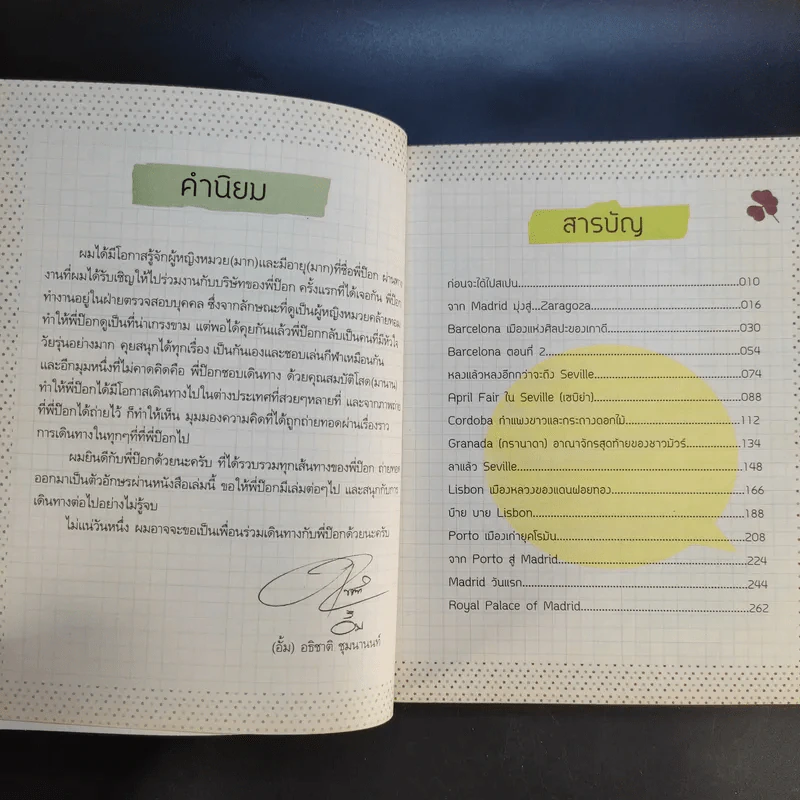 คำนิยม
ผมได้มีโอกาสรู้จักผู้หญิงหมวย(มาก)และมีอายุ(มาก)ที่ชื่อพี่ป๊อก ผ่านทาง
งานที่ผมได้รับเชิญให้ไปร่วมงานกับบริษัทของพี่ป๊อก ครั้งแรกที่ได้เจอกัน พี่ป๊อก
ทำงานอยู่ในฝ่ายตรวจสอบบุคคล ซึ่งจากลักษณะที่ดูเป็นผู้หญิงหมวยคล้ายทอม
ทำให้พี่ป๊อกดูเป็นที่น่าเกรงขาม แต่พอได้คุยกันแล้วพี่ป๊อกกลับเป็นคนที่มีหัวใจ
วัยรุ่นอย่างมาก คุยสนุกได้ทุกเรื่อง เป็นกันเองและชอบเล่นกีฬาเหมือนกัน
และอีกมุมหนึ่งที่ไม่คาดคิดคือ พี่ป๊อกชอบเดินทาง ด้วยคุณสมบัติโสด(มานาน)
ทำให้พี่ป๊อกได้มีโอกาสเดินทางไปในต่างประเทศที่สวยๆหลายที่ และจากภาพถ่าย
ที่พี่ป๊อกได้ถ่ายไว้ ก็ทำให้เห็น มุมมองความคิดที่ได้ถูกถ่ายทอดผ่านเรื่องราว
การเดินทางในทุกๆที่ที่พี่ป๊อกไป
ผมยินดีกับพี่ป๊อกด้วยนะครับ ที่ได้รวบรวมทุกเส้นทางของพี่ป๊อก ถ่ายทอด
ออกมาเป็นตัวอักษรผ่านหนังสือเล่มนี้ ขอให้พี่ป๊อกมีเล่มต่อๆไป และสนุกกับการ
เดินทางต่อไปอย่างไม่รู้จบ
ไม่แน่วันหนึ่ง ผมอาจจะขอเป็นเพื่อนร่วมเดินทางกับพี่ป๊อกด้วยนะครับ
อั้ม
(อั้ม) อธิชาติ ชุมนานนท์
สารบัญ
ก่อนจะได้ไปสเปน...010
จาก Madrid มุ่งสู่...Zaragoza...016
Barcelona เมืองแห่งศิลปะของเกาดี้...030
Barcelona ตอนที่ 2...054
หลงแล้วหลงอีกกว่าจะถึง Seville...074
April Fair ใน Seville (เซบิย่า)...088
Cordoba กำแพงขาวและกระถางดอกไม้...112
Granada (กรานาดา) อาณาจักรสุดท้ายของชาวมัวร์...134
ลาแล้ว Seville...148
Lisbon เมืองหลวงของแดนฝอยทอง...166
บ๊าย บาย Lisbon...188
Porto เมืองเก่ายุคโรมัน...208
จาก Porto สู่ Madrid...224
Madrid วันแรก...244
Royal Palace of Madrid...262